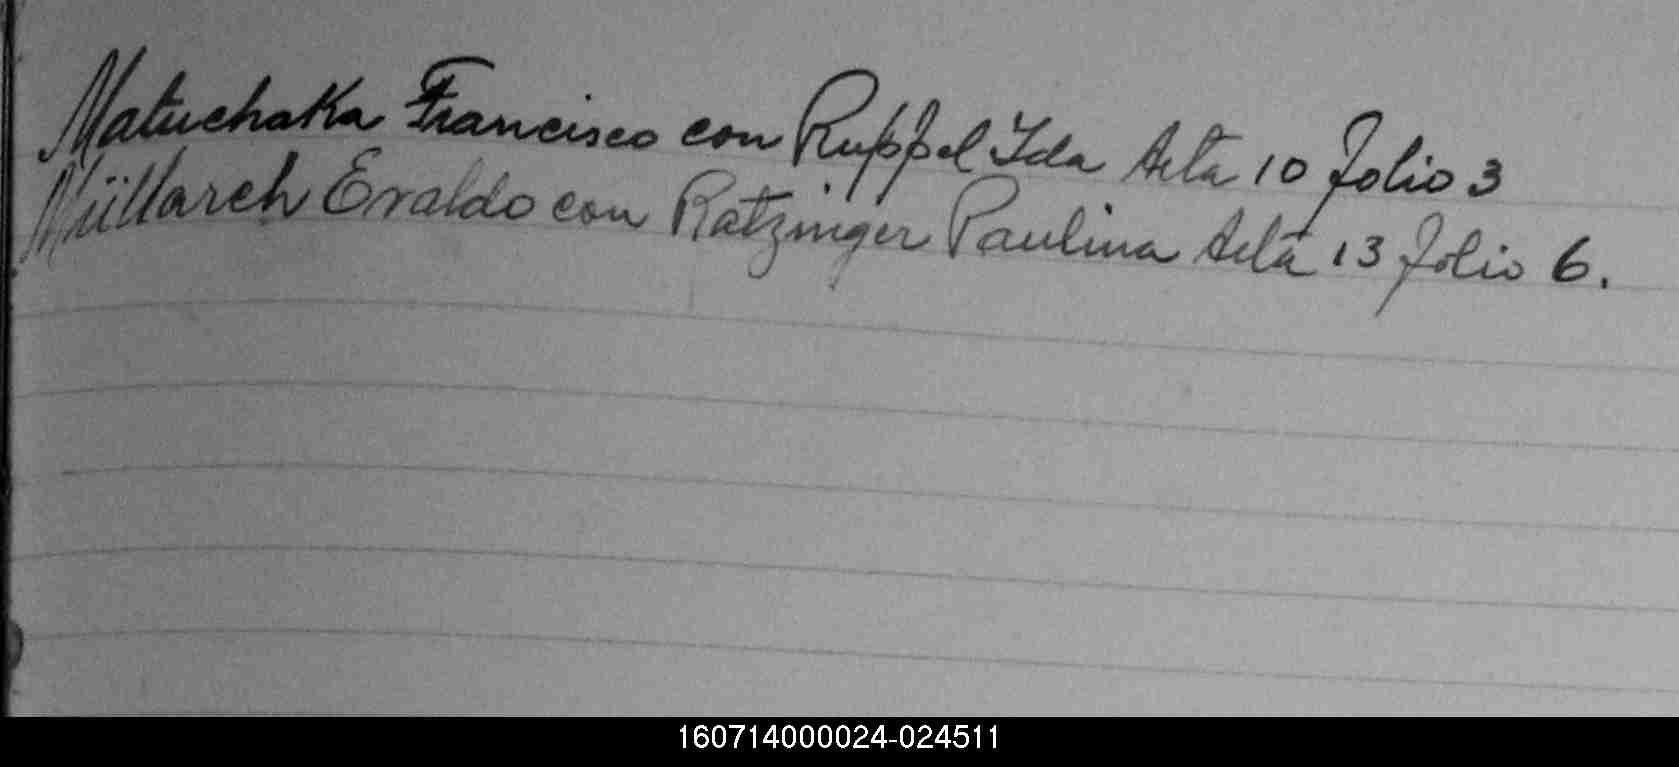 Matuchaka Francisco con Ruppel Ida Acta 10 folio 3
Müllarch Evaldo con Ratzinger Paulina Acta 13 folio 6.
160714000024-024511